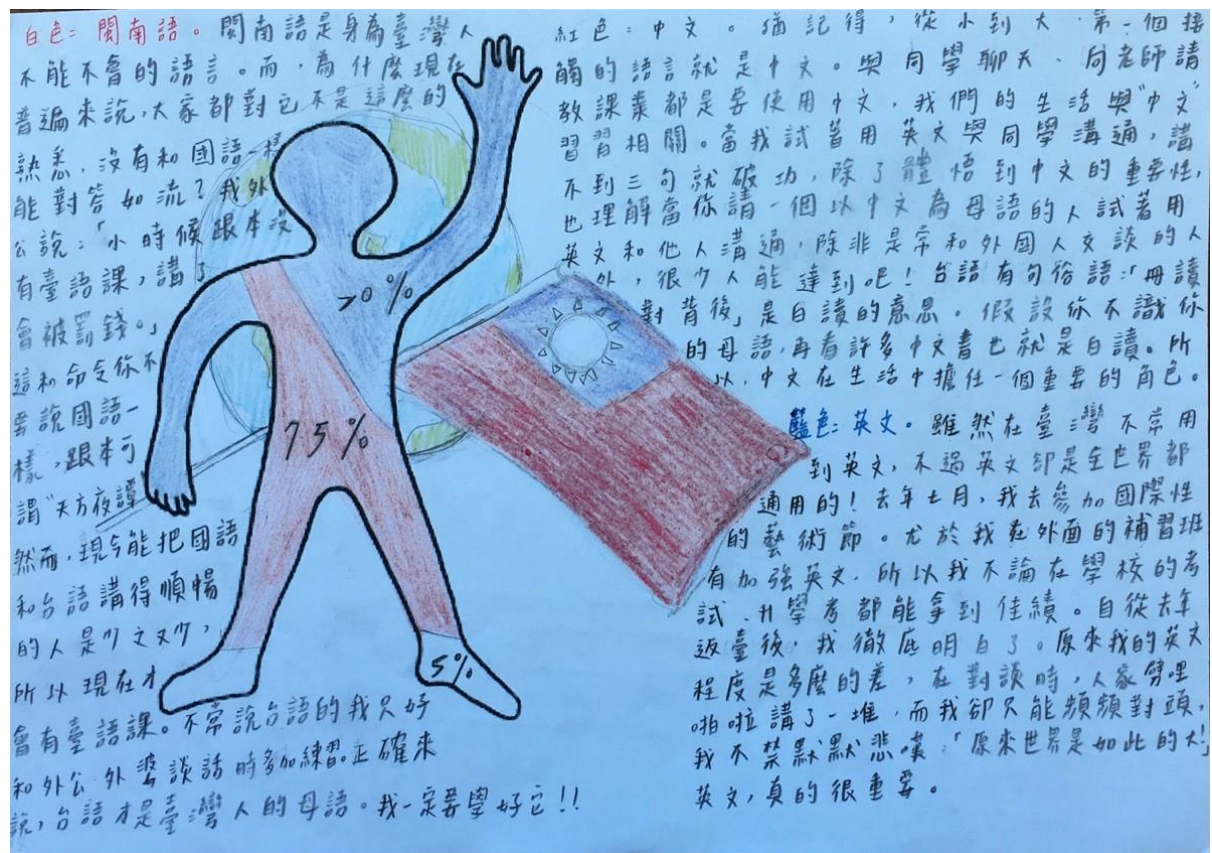 白色：閩南語。閩南語是身為臺灣人
不能不會的語言。而，為什麼現在
普遍來說，大家都對它不是這麼的
熟悉，沒有和國語一樣
能對答如流？我外
公說：「小時候跟本沒
有臺語課，講了
會被罰錢。」
這和命令你不
要說國語一
樣，跟本可
謂"天方夜譚"
然而，現今能把國語
和台語講得順暢
的人是少之又少，
所以現在才
會有臺語課。不常說台語的我只好
和外公、外婆談話時多加練習。正確來
說，台語才是臺灣人的母語。我一定要學好它!!
70%
75%
5%
紅色：中文。猶記得，從小到大，第一個接
觸的語言就是中文。與同學聊天、向老師請
教課業都是要使用中文，我們的生活與"中文"
習習相關。當我試著用英文與同學溝通，講
不到三句就破功，除了體悟到中文的重要性，
也理解當你請一個以中文為母語的人試著用
英文和他人溝通，除非是常和外國人交談的人
外，很少人能達到吧！台語有句俗語：「冊讀
對背後」是白讀的意思。假設你不識你
的母語，再看許多中文書也就是白讀。所
以，中文在生活中擔任一個重要的角色。
藍色：英文。雖然在臺灣不常用
到英文，不過英文卻是全世界都
通用的！去年七月，我去參加國際性
的藝術節。尤於我在外面的補習班
有加強英文，所以我不論在學校的考
試、升學考都能拿到佳績。自從去年
返臺後，我徹底明白了。原來我的英文
程度是多麼的差，在對談時，人家劈哩
啪啦講了一堆，而我卻只能頻頻對頭，
我不禁默默悲嘆：「原來世界是如此的大!」
英文，真的很重要。